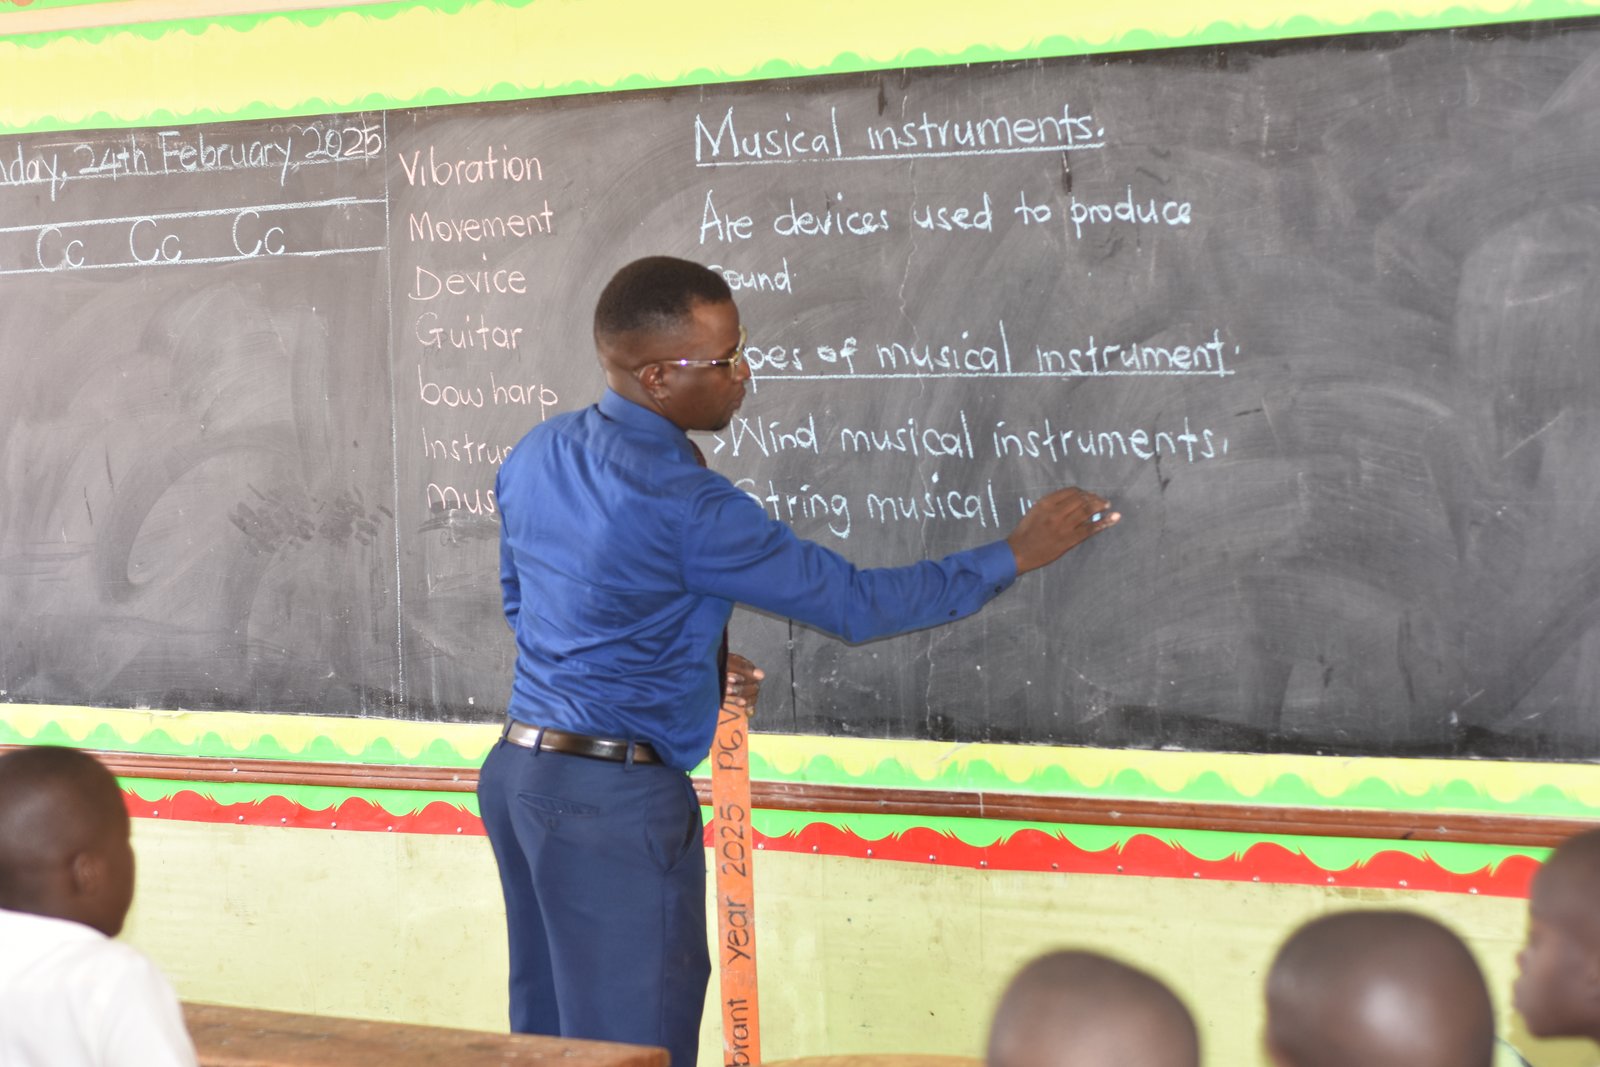 24th February, 2025
Cc Cc Cc
Vibration
Movement
Device
Guitar
bow harp
Instru
mus
Musical instruments.
Are devices used to produce
ound
pes of musical instrument.
>Wind musical instruments.
String musical in
brant year 2025 P6.V